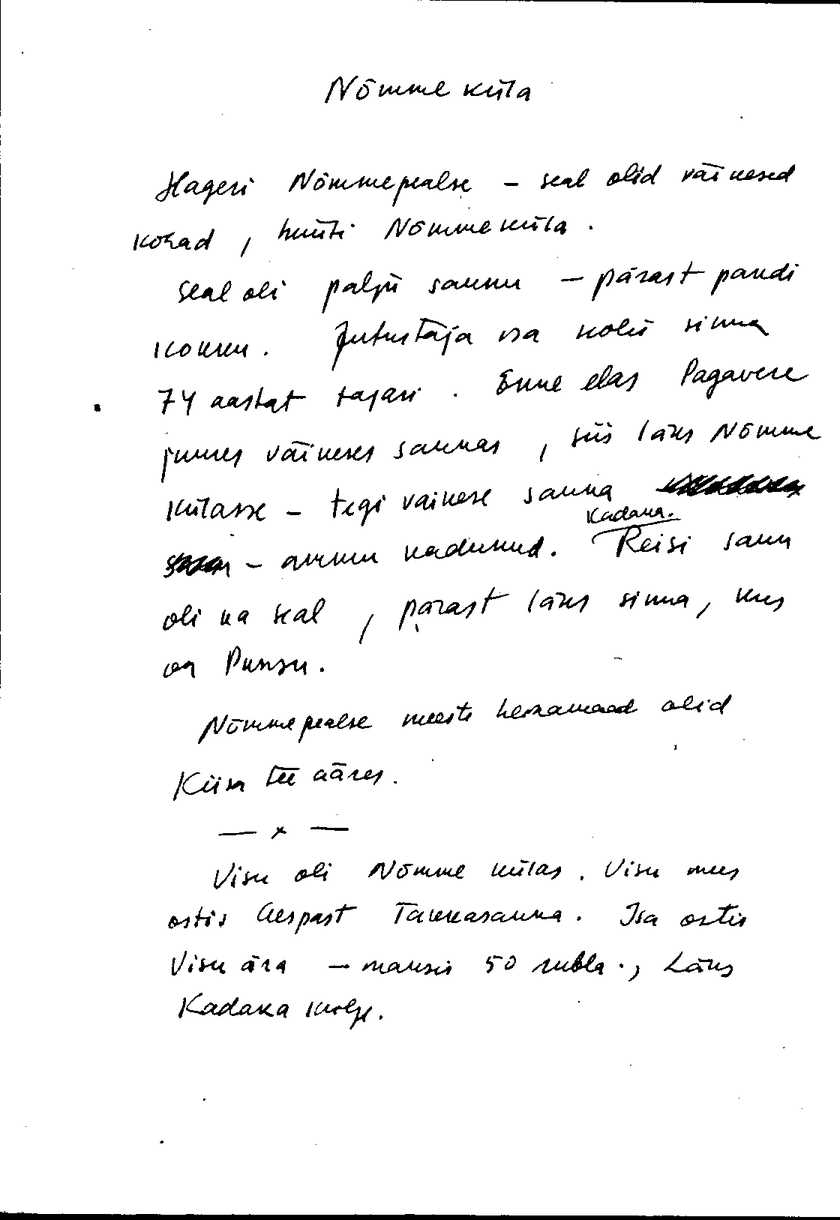 Nõmme küla
Hageri Nõmmepealse – seal olid väikesed
kohad, hüüti Nõmme küla.
Seal oli palju saunu – pärast pandi
kokku. Jutustaja isa kolis sinna
74 aastat tagasi. Enne elas Pagavere
juures väikeses saunas, siis läks Nõmme
külasse – tegi väikese sauna
– ammu kadunud. Kadaka. Reisi saun
oli ka seal, pärast läks sinna, kus
on Punsu.
Nõmmepealse meeste heinamaad olid
Kiisa tee ääres.
— x —
Visu oli Nõmme külas. Visu mees
ostis Aespast Taukasauna. Isa ostis
Visu ära – maksis 50 rubla., Läks
Kadaka külje.